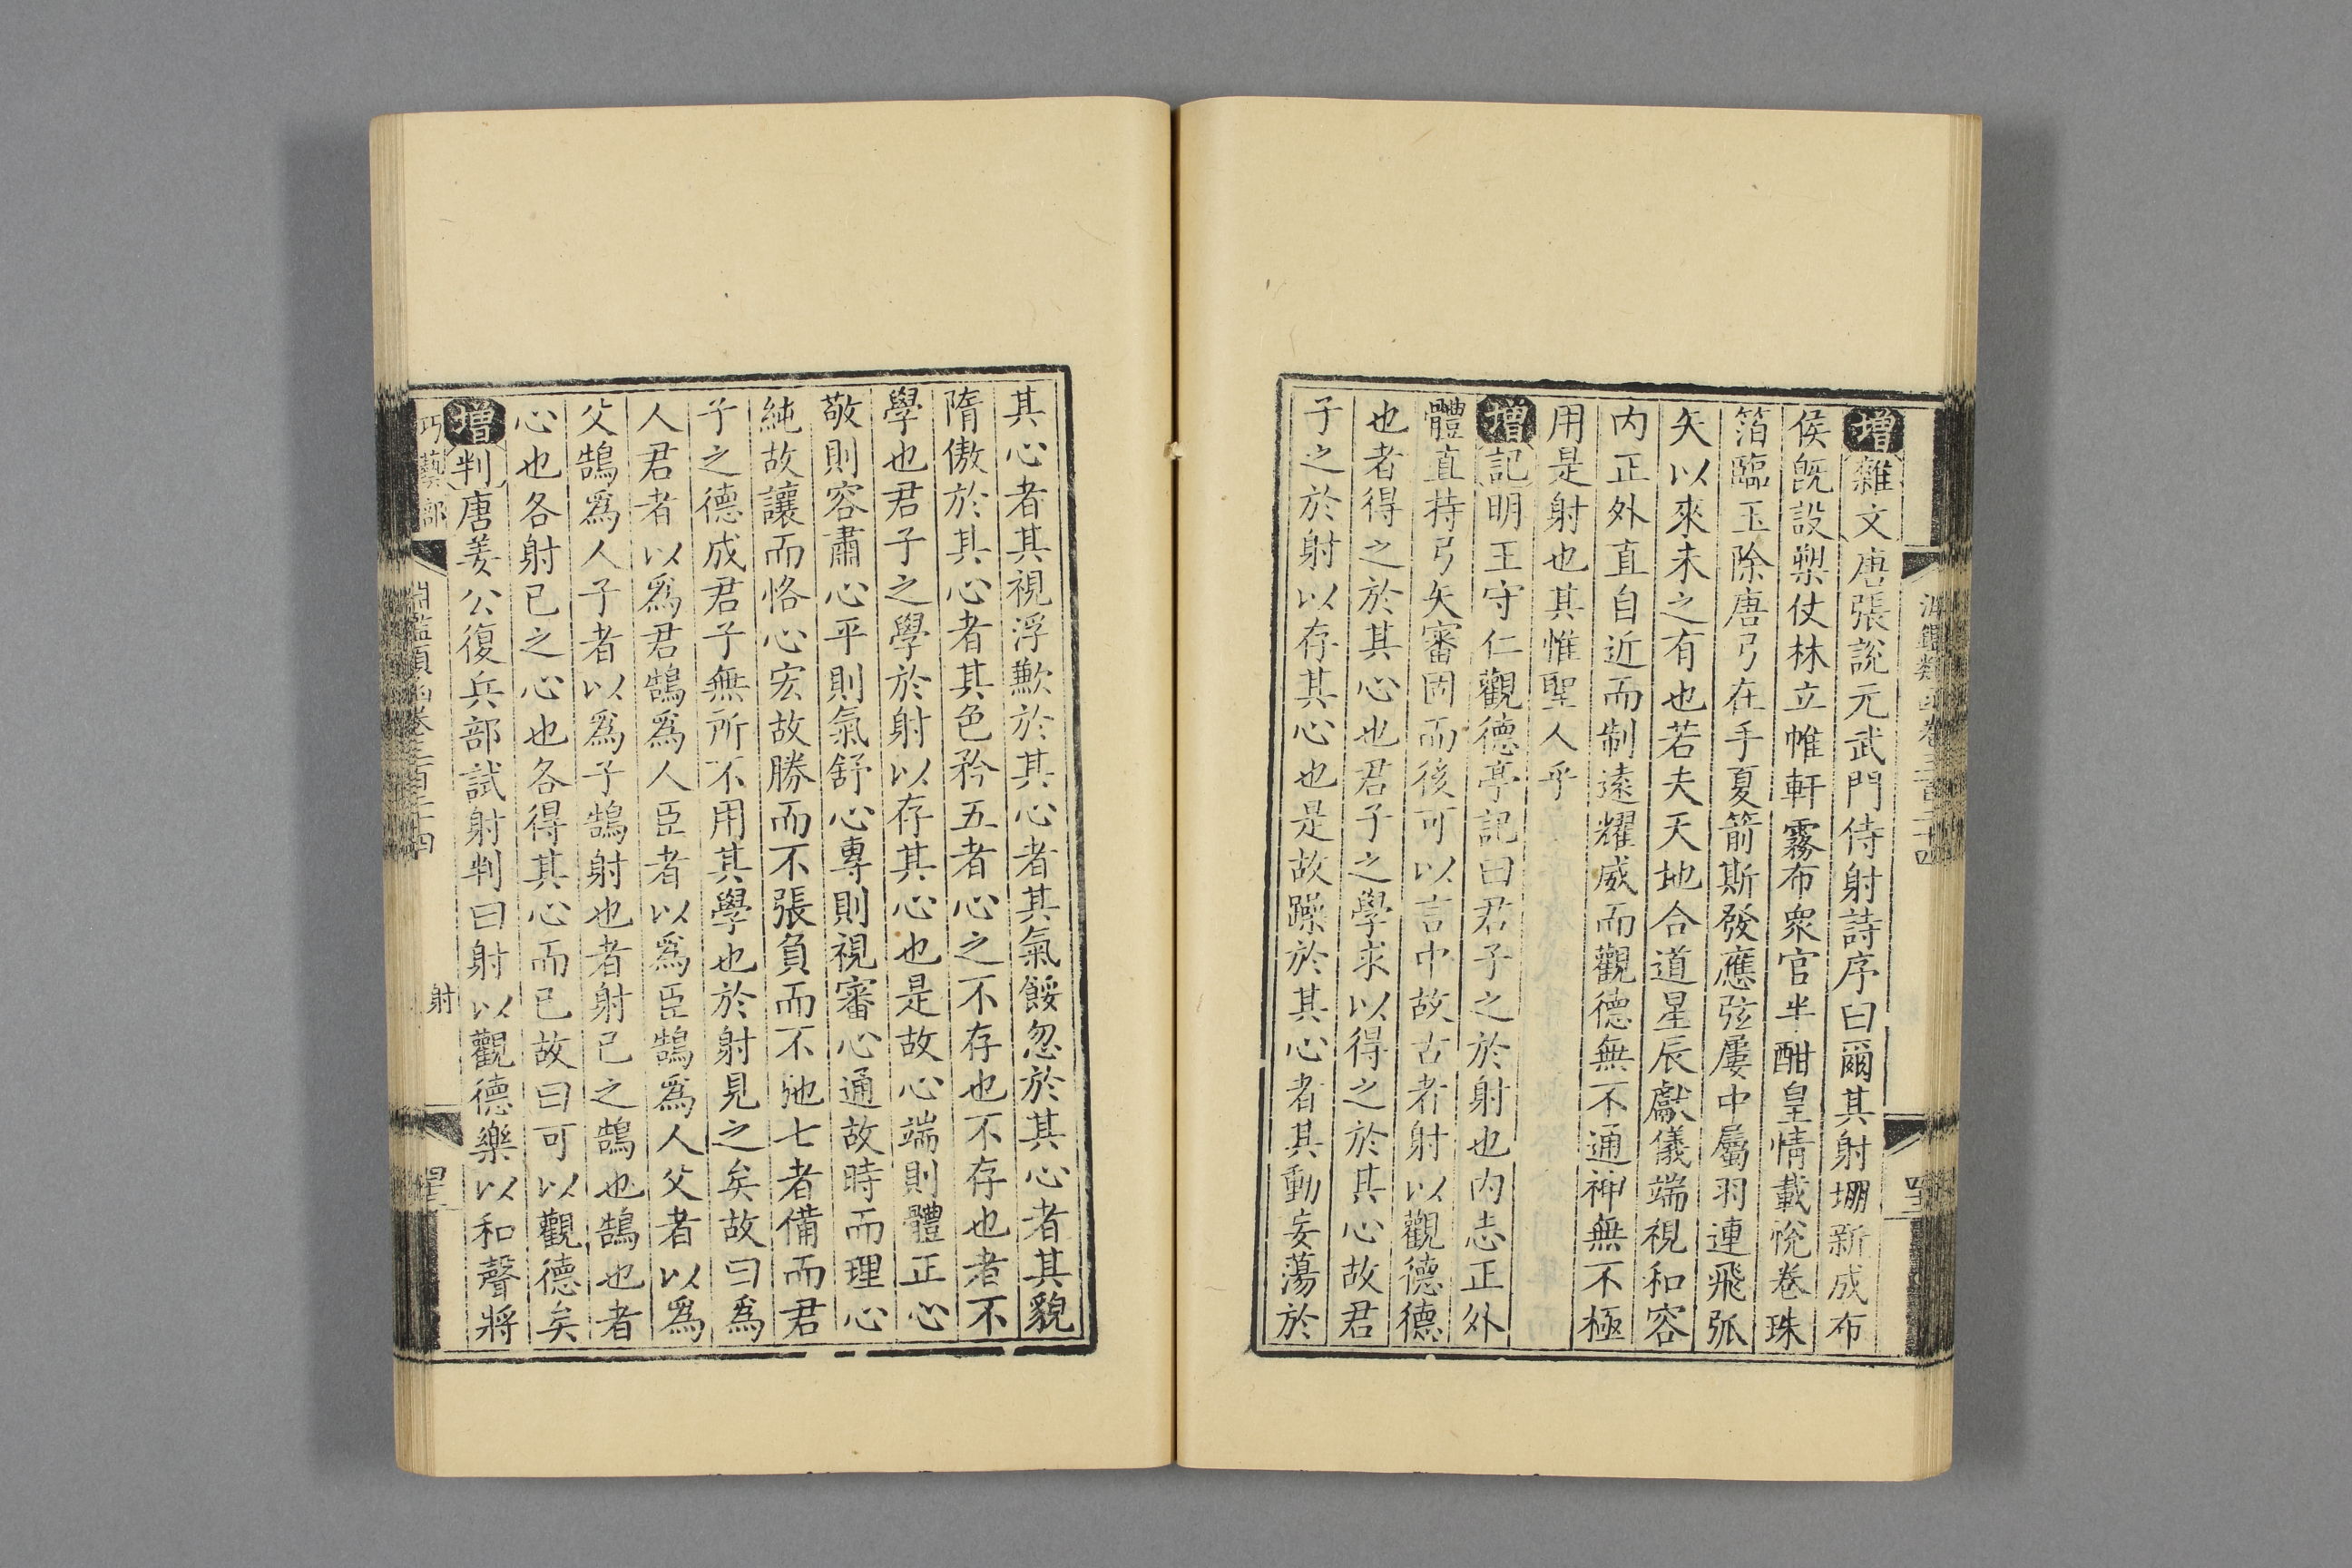 增雜文唐張說元武門侍射詩序曰爾其射堋新成布
侯旣設槊仗林立帷軒霧布衆官半酣皇情載悅卷珠
箔臨玉除唐弓在手夏箭斯發應弦屢中屬羽連飛弧
矢以來未之有也若夫天地合道星辰獻儀端視和容
内正外直自近而制遠耀威而觀德無不通神無不極
用是射也其惟聖人乎
增記明王守仁觀德亭記曰君子之於射也内志正外
體直持弓矢審固而後可以言中故古者射以觀德德
也者得之於其心也君子之學求以得之於其心故君
子之於射以存其心也是故躁於其心者其動妄蕩於
其心者其視浮歉於其心者其氣餒忽於其心者其貌
隋傲於其心者其色矜五者心之不存也不存也者不
學也君子之學於射以存其心也是故心端則體正心
敬則容肅心平則氣舒心專則視審心通故時而理心
純故讓而恪心宏故勝而不張負而不弛七者備而君
子之德成君子無所不用其學也於射見之矣故曰爲
人君者以爲君鵠爲人臣者以爲臣鵠爲人父者以爲
父鵠爲人子者以爲子鵠射也者射己之鵠也鵠也者
心也各射己之心也各得其心而已故曰可以觀德矣
增判唐姜公復兵部試射判曰射以觀德樂以和聲將
巧藝部 淵鑑類函卷三百二十四 射